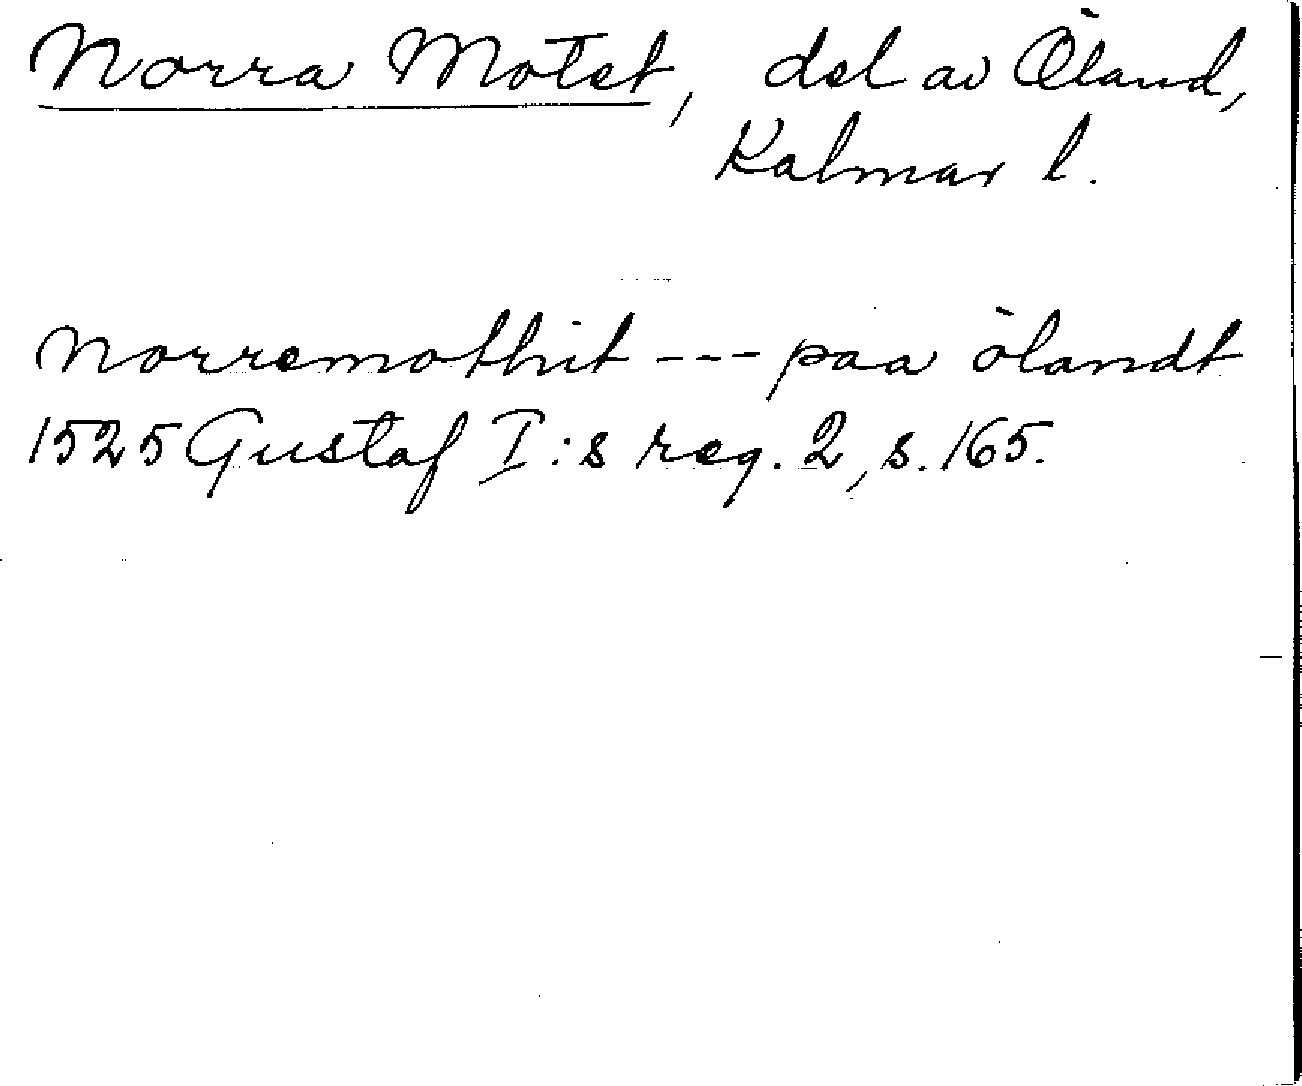 Norra Motet, del av Öland,
Kalmar l.
Norremothit --- paa ölandt
1525 Gustaf I:s reg. 2, s. 165.